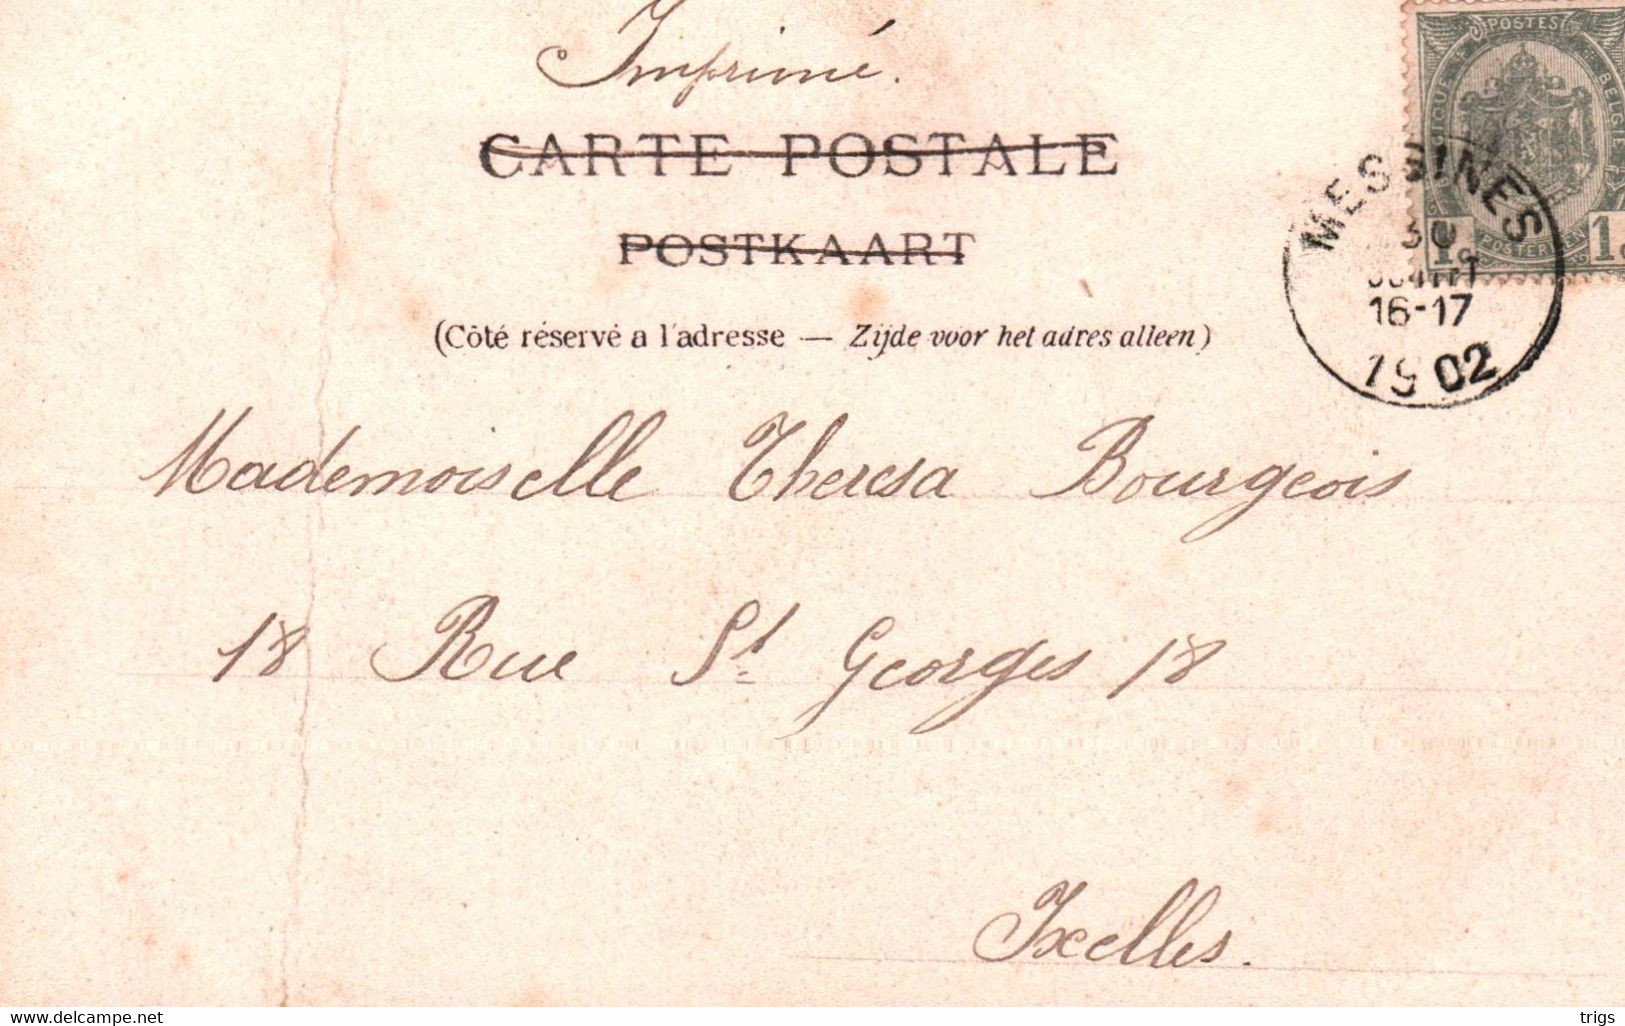 Imprimé.
CARTE POSTALE
POSTKAART
(Côté réservé a l'adresse — Zijde voor het adres alleen)
POSTES
BELGIE
1c
1c
MESSINES
30
16-17
1902
Mademoiselle Theresa Bourgeois
18 Rue St Georges 18
Ixelles.
delcampe.net
trigs